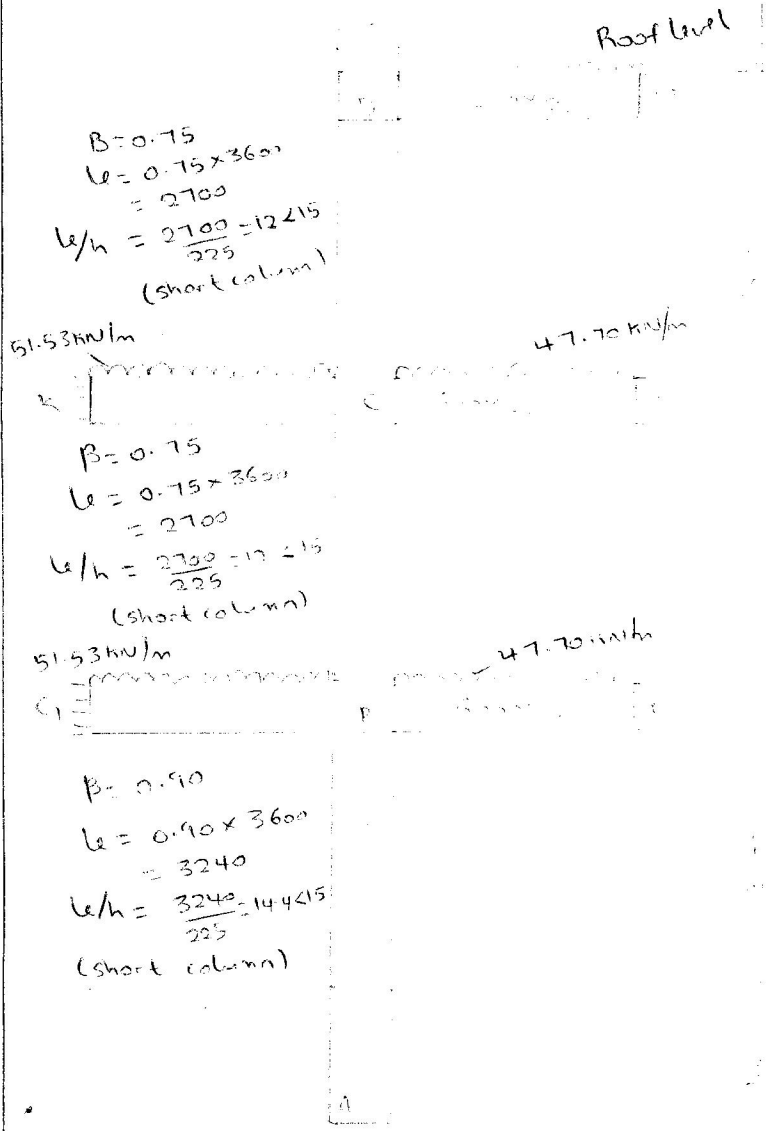 Roof level
B = 0.75
le = 0.75 x 3600
= 2700
le/h = 2700/225 = 12 < 15
(short column)
51.53 KN/m
47.70 KN/m
C
β = 0.75
le = 0.75 x 3600
= 2700
le/h = 2700/225 = 12 < 15
(short column)
51.53 KN/m
47.70 KN/m
β = 0.90
le = 0.90 x 3600
= 3240
le/h = 3240/225 = 14.4 < 15
(short column)
A